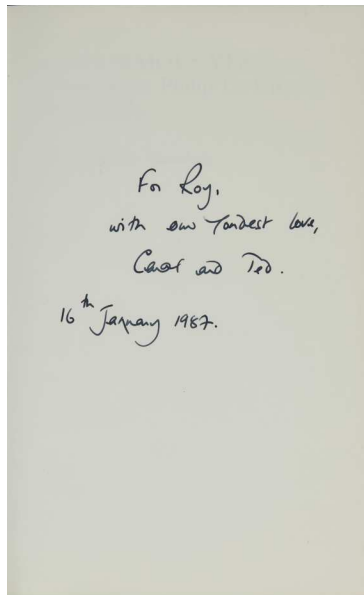 For Roy,
with our fondest love,
Carol and Ted.
16th January 1987.